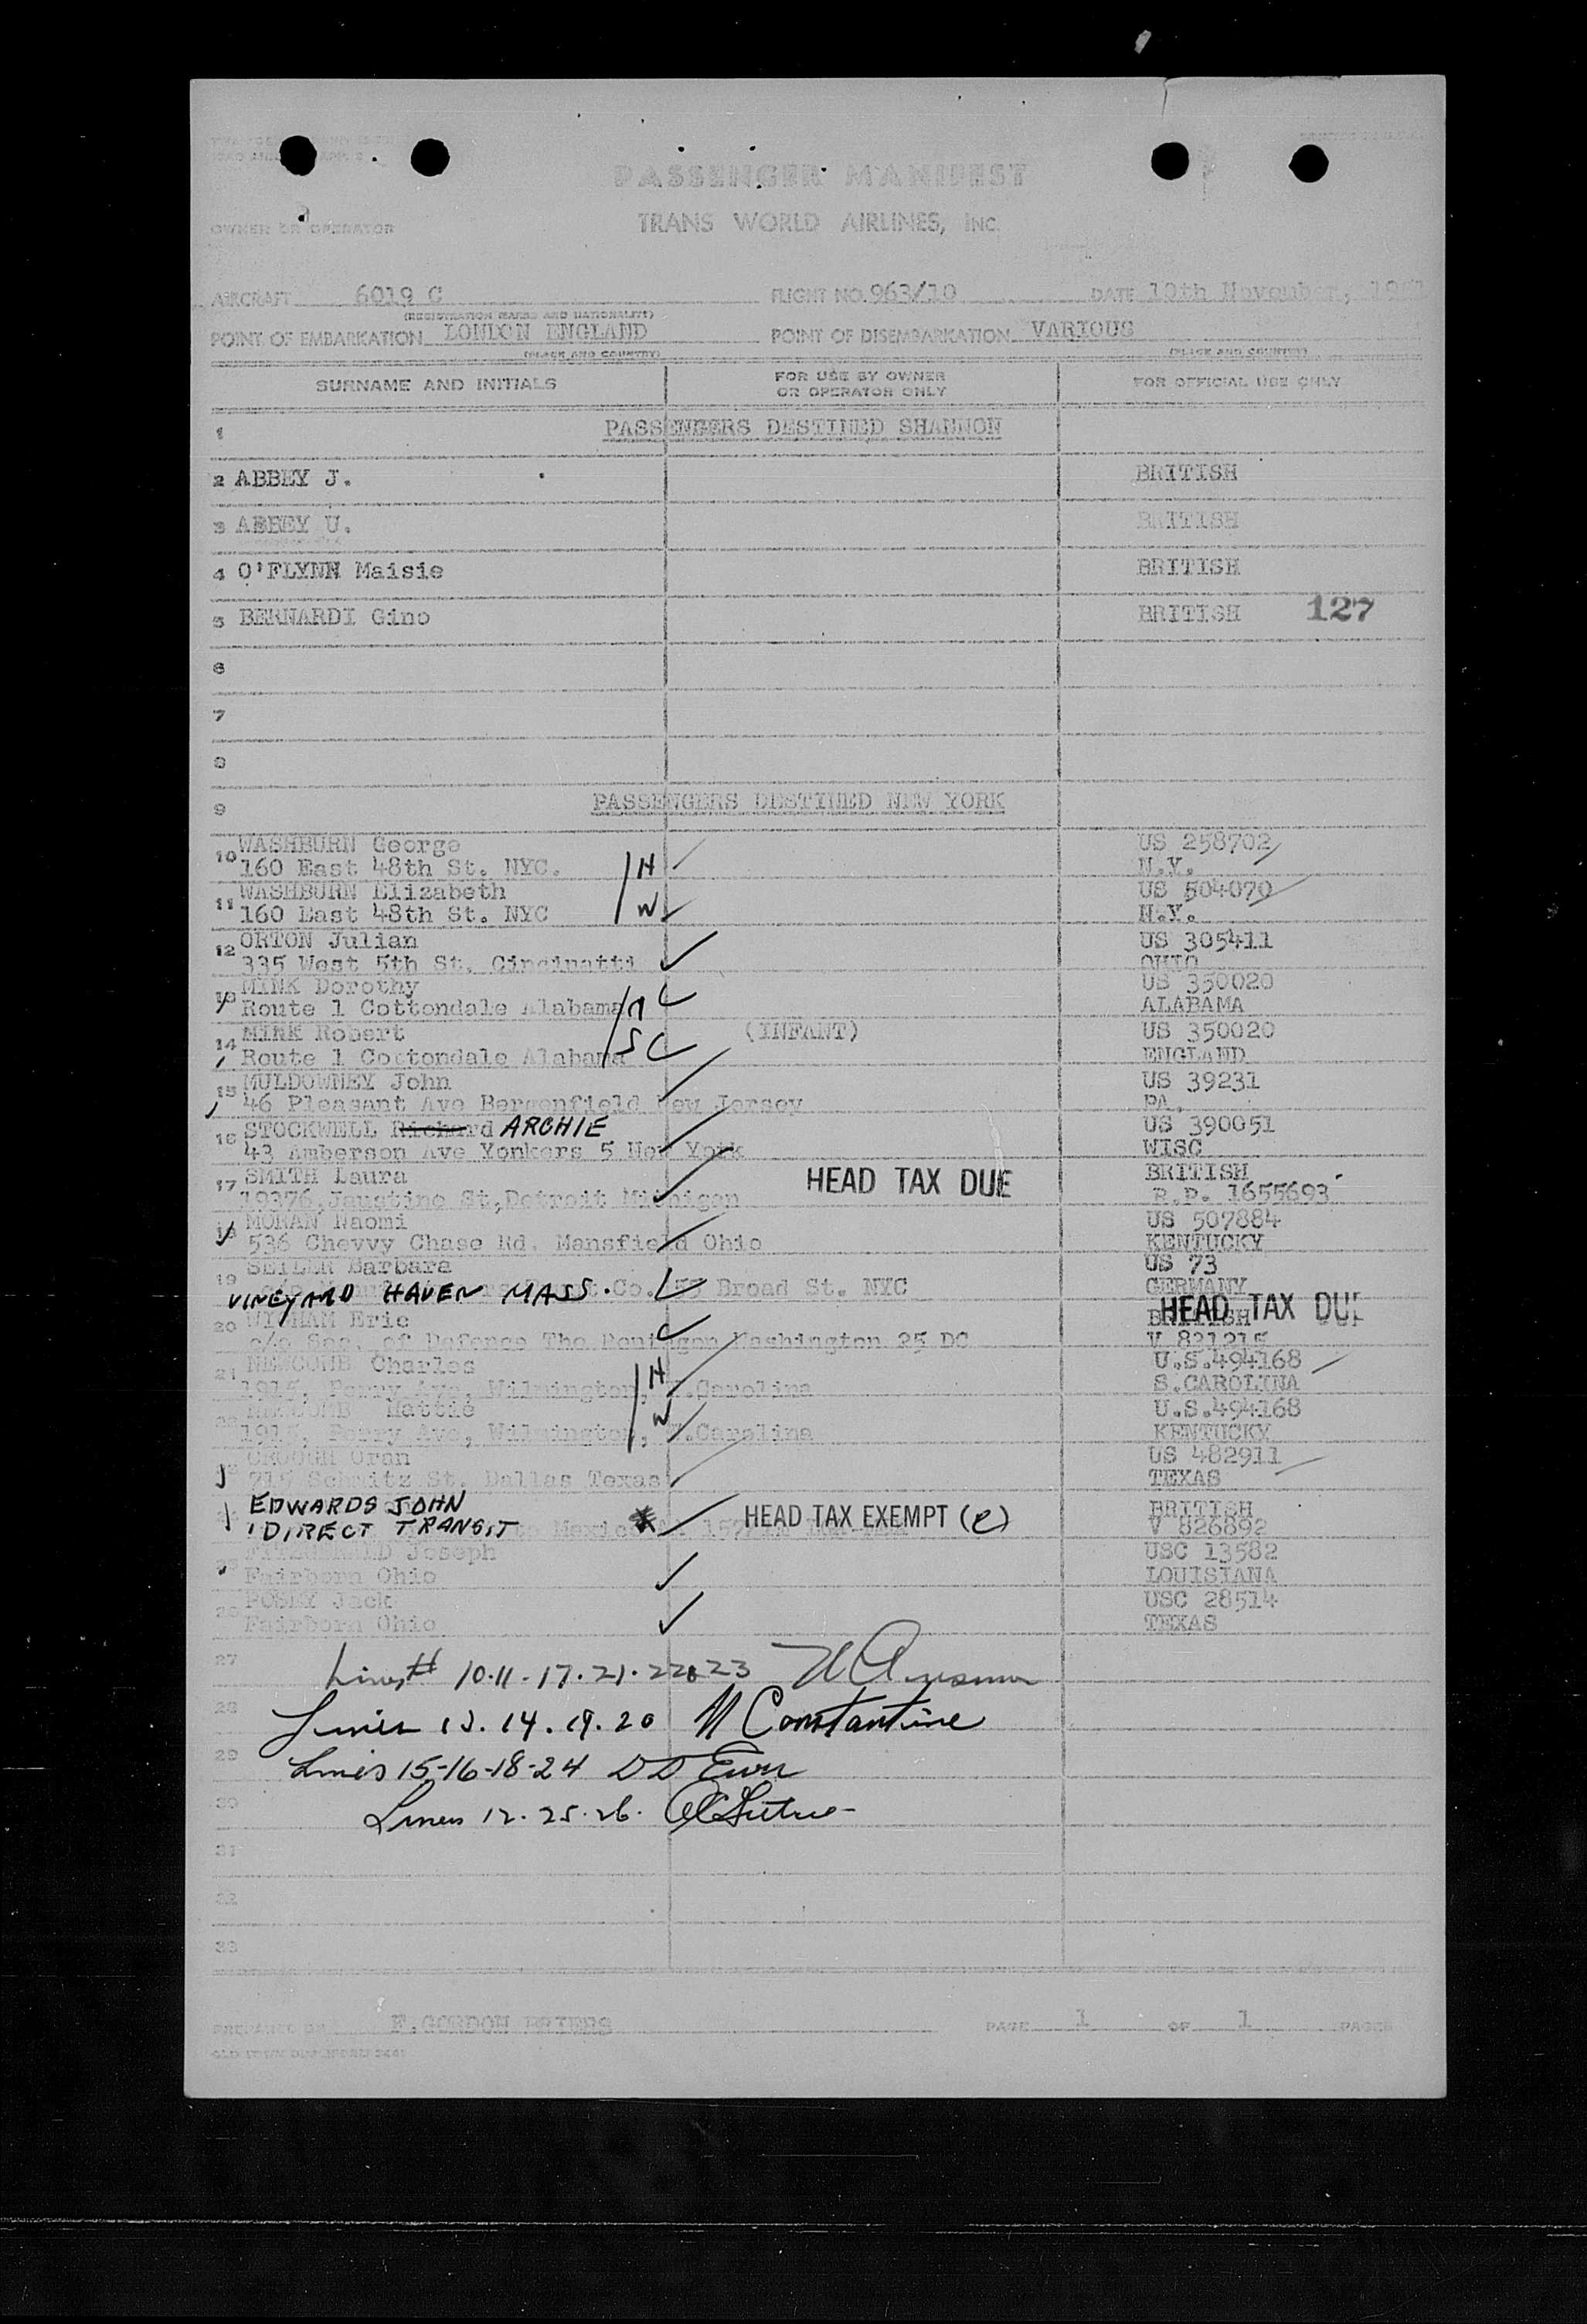 PASSENGER MANIFEST
OWNER OR OPERATOR TRANS WORLD AIRLINES, INC.
AIRCRAFT 6019 C FLIGHT NO. 963/10 DATE 10th November, 19
(REGISTRATION MARKS AND NATIONALITY)
POINT OF EMBARKATION LONDON ENGLAND POINT OF DISEMBARKATION VARIOUS
(PLACE AND COUNTRY) (PLACE AND COUNTRY)
SURNAME AND INITIALS FOR USE BY OWNER OR OPERATOR ONLY FOR OFFICIAL USE ONLY
1 PASSENGERS DESTINED SHANNON
2 ABBEY J. BRITISH
3 ABBEY U. BRITISH
4 O'FLYNN Maisie BRITISH
5 BERNARDI Gino BRITISH 127
6
7
8
9 PASSENGERS DESTINED NEW YORK
10 WASHBURN George US 258702
160 East 48th St. NYC. H N.Y.
11 WASHBURN Elizabeth US 504070
160 East 48th St. NYC W N.Y.
12 ORTON Julian US 305411
335 West 5th St. Cincinatti OHIO
13 MINK Dorothy US 350020
Route 1 Cottondale Alabama M ALABAMA
14 MINK Robert (INFANT) US 350020
Route 1 Cottondale Alabama S ENGLAND
15 MULDOWNEY John US 39231
46 Pleasant Ave Bergenfield New Jersey PA.
16 STOCKWELL Richard ARCHIE US 390051
43 Amberson Ave Yonkers 5 New York WISC
17 SMITH Laura HEAD TAX DUE BRITISH
19376, Justine St, Detroit Michigan R.P. 1655693
18 MORAN Naomi US 507884
536 Chevvy Chase Rd. Mansfield Ohio KENTUCKY
19 SEILER Barbara US 73
VINEYARD HAVEN MASS. Co. 55 Broad St. NYC GERMANY
HEAD TAX DUE
20 Eric BRITISH
c/o Sec. of Defense The Pentagon Washington 25 DC V 821215
21 NEWCOMB Charles H U.S.494168
1915, Perry Ave, Wilmington, N.Carolina S.CAROLINA
22 NEWCOMB Hattie W U.S.494168
1915, Perry Ave, Wilmington, N.Carolina KENTUCKY
23 CROUCH Oran US 482911
715 Schmitz St. Dallas Texas TEXAS
EDWARDS JOHN HEAD TAX EXEMPT (e) BRITISH
DIRECT TRANSIT V 826892
25 FITZGERALD Joseph USC 13582
Fairborn Ohio LOUISIANA
26 POSEY Jack USC 28514
Fairborn Ohio TEXAS
27 Lines 10-11-17-21-22&23
28 Lines 13.14.19.20 M Constantine
29 Lines 15-16-18-24 DD
30 Lines 12.25.26.
31
32
33
PREPARED BY F.GORDON PETERS PAGE 1 OF 1 PAGES